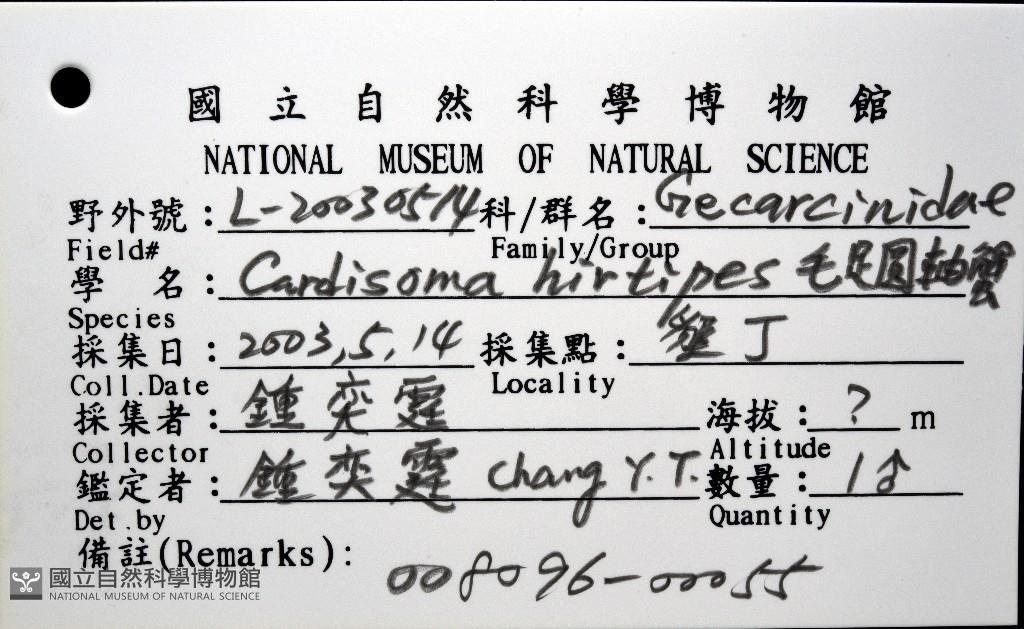 國立自然科學博物館
NATIONAL MUSEUM OF NATURAL SCIENCE
野外號：L-20030514 科/群名：Gecarcinidae
Field# Family/Group
學 名：Cardisoma hirtipes 毛足圓軸蟹
Species
採集日：2003,5,14 採集點：墾丁
Coll.Date Locality
採集者：鍾奕霆 海拔：? m
Collector Altitude
鑑定者：鍾奕霆 Chang Y.T. 數量：1♂
Det.by Quantity
備註(Remarks)：
008096-00055
國立自然科學博物館
NATIONAL MUSEUM OF NATURAL SCIENCE